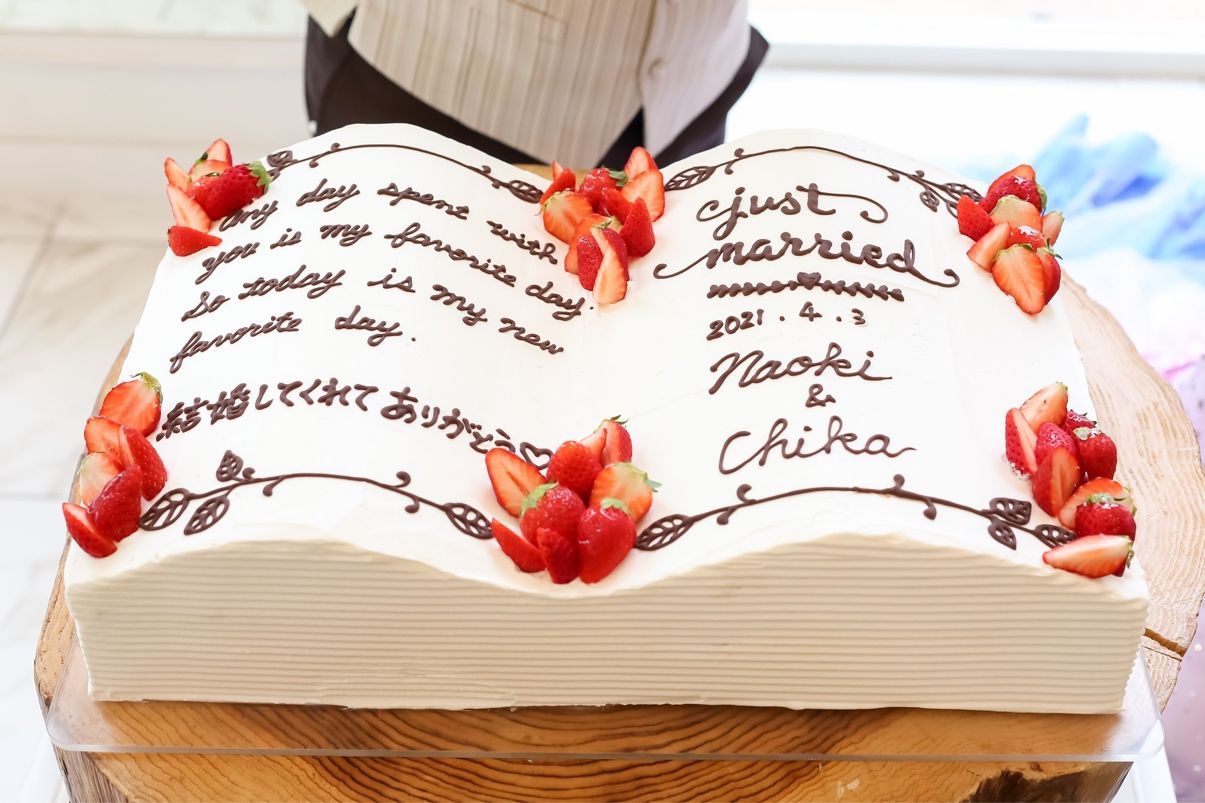 Any day spent with
you is my favorite day.
So today is my new
favorite day.
結婚してくれてありがとう♡
just
married
2021.4.3
Naoki
&
Chika